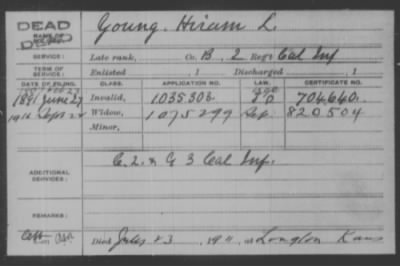 DEAD
NAME OF SOLDIER:
Young, Hiram L.
SERVICE: Late rank, Co. B, 2 Reg't Cal Inf
TERM OF SERVICE: Enlisted , 1 Discharged , 1
DATE OF FILING. CLASS. APPLICATION NO. LAW. CERTIFICATE NO.
1891 June 27 Invalid, 1035303 704,640.
Widow, 1075299 820504
Minor,
ADDITIONAL SERVICES: C. 2. & G 3 Cal Inf.
REMARKS:
Died July 23, 1911, at Longton Kans